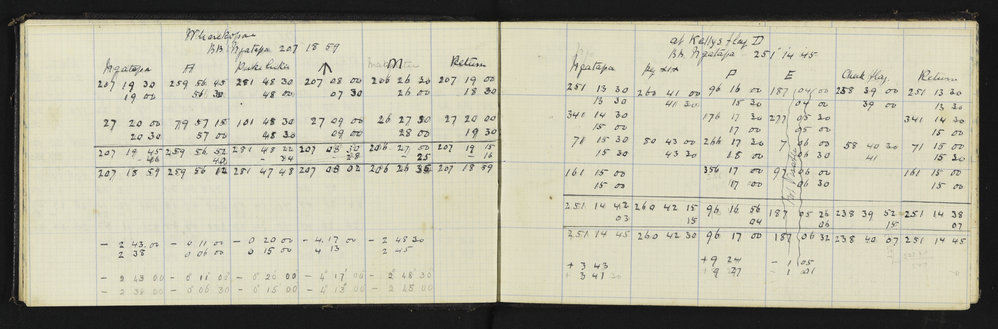 Wharekopae
BB. Ngatapa 207 18 59
Ngatapa A Pukekiekie ↑ M Return
207 19 30 259 56 45 281 48 30 207 08 00 206 26 30 207 19 00
19 00 56 30 48 00 07 30 26 00 18 30
27 20 00 79 57 15 101 48 30 27 09 00 26 27 30 27 20 00
20 30 57 00 48 30 09 00 28 00 19 30
207 19 45 259 56 52 281 48 22 207 08 30 206 27 00 207 19 15
- 46 40 - 34 - 28 - 25 - 16
207 18 59 259 56 12 281 47 48 207 08 02 206 26 35 207 18 59
- 2 43 00 - 0 11 00 - 0 20 00 - 4 17 00 - 2 48 30
2 38 0 06 00 0 15 00 4 13 2 45
- 2 43 00 - 0 11 00 - 0 20 00 - 4 17 00 - 2 48 30
- 2 38 00 - 0 06 30 - 0 15 00 - 4 13 00 - 2 45 00
at Kellys flag D
BB. Ngatapa 251 14 45
Ngatapa P E Chalk flag. Return
251 13 30 260 41 00 96 16 00 187 04 00 238 39 00 251 13 30
13 30 41 30 15 30 04 00 39 00 13 30
341 14 30 176 17 30 277 05 30 341 14 30
15 00 17 00 05 00 15 00
71 15 30 80 43 00 266 17 30 7 06 00 58 40 30 71 15 00
15 30 43 30 18 00 06 30 41 15 30
161 15 00 356 17 00 97 06 00 161 15 00
15 00 17 00 06 30 15 00
251 14 42 260 42 15 96 16 56 187 05 26 238 39 52 251 14 38
03 15 04 06 15 07
251 14 45 260 42 30 96 17 00 187 06 32 238 40 07 251 14 45
+ 3 43 + 9 24 - 1 05
+ 3 41 30 + 9 27 - 1 01